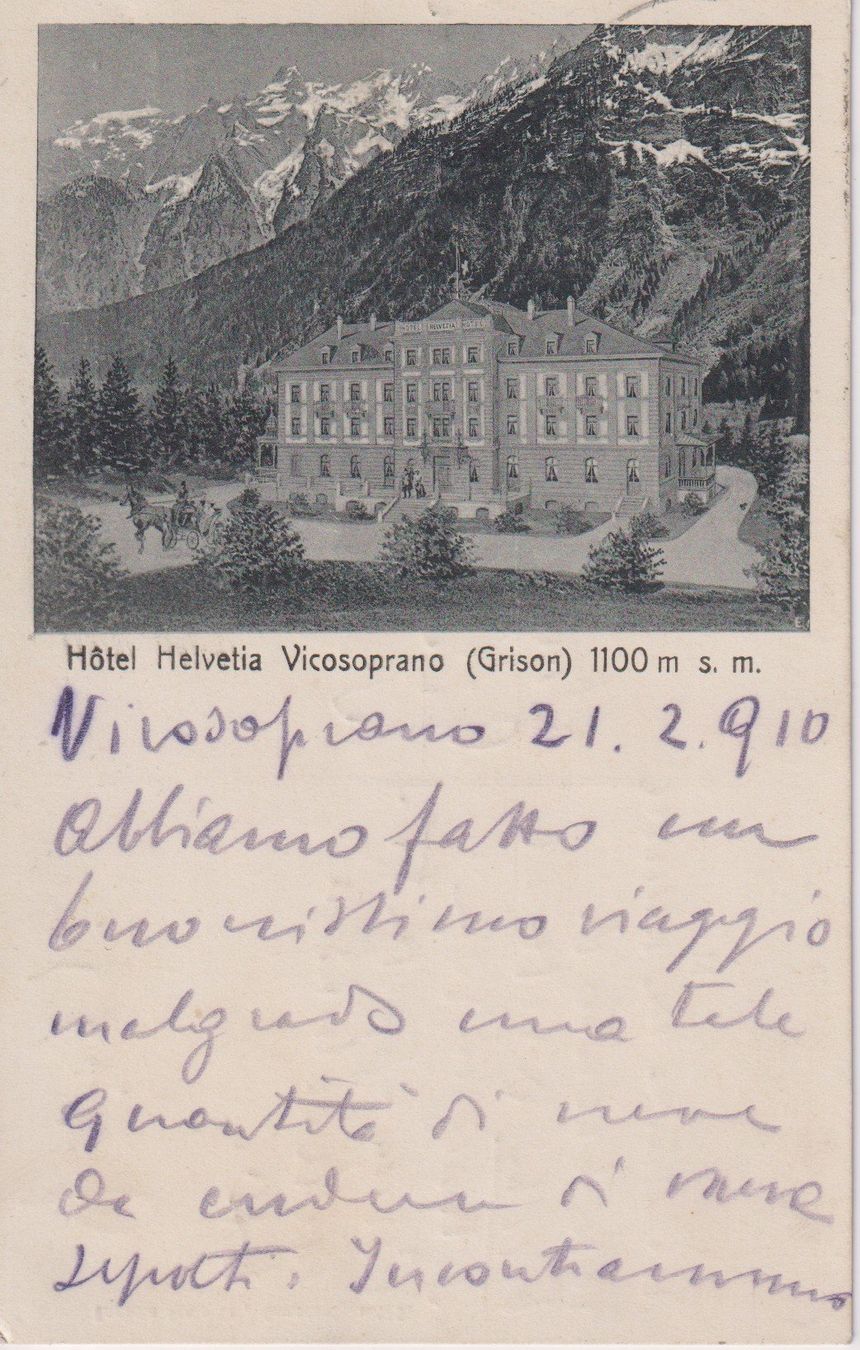 HOTEL HELVETIA HOTEL
Hôtel Helvetia Vicosoprano (Grison) 1100 m s. m.
Vicosoprano 21. 2. 910
Abbiamo fatto un
buonissimo viaggio
malgrado una tale
quantità di neve
da creder di
sepolti. Incontrammo